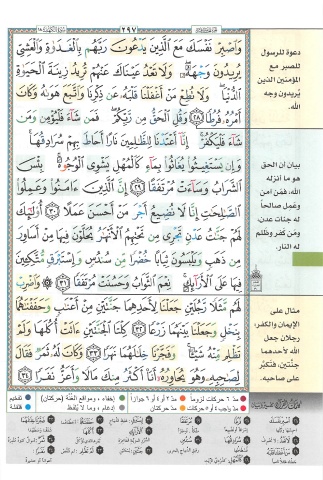 ٢٩٧
وَاصْبِرْ نَفْسَكَ مَعَ الَّذِينَ يَدْعُونَ رَبَّهُم بِالْغَدَوٰةِ وَالْعَشِيِّ
يُرِيدُونَ وَجْهَهُ وَلَا تَعْدُ عَيْنَاكَ عَنْهُمْ تُرِيدُ زِينَةَ الْحَيَوٰةِ
الدُّنْيَا وَلَا تُطِعْ مَنْ أَغْفَلْنَا قَلْبَهُ عَن ذِكْرِنَا وَاتَّبَعَ هَوَىٰهُ وَكَانَ
أَمْرُهُ فُرُطًا ٢٨ وَقُلِ الْحَقُّ مِن رَّبِّكُمْ فَمَن شَاءَ فَلْيُؤْمِن وَمَن
شَاءَ فَلْيَكْفُرْ إِنَّا أَعْتَدْنَا لِلظَّالِمِينَ نَارًا أَحَاطَ بِهِمْ سُرَادِقُهَا
وَإِن يَسْتَغِيثُوا يُغَاثُوا بِمَاءٍ كَالْمُهْلِ يَشْوِي الْوُجُوهَ بِئْسَ
الشَّرَابُ وَسَاءَتْ مُرْتَفَقًا ٢٩ إِنَّ الَّذِينَ ءَامَنُوا وَعَمِلُوا
الصَّالِحَاتِ إِنَّا لَا نُضِيعُ أَجْرَ مَنْ أَحْسَنَ عَمَلًا ٣٠ أُولَٰئِكَ
لَهُمْ جَنَّاتُ عَدْنٍ تَجْرِي مِن تَحْتِهِمُ الْأَنْهَارُ يُحَلَّوْنَ فِيهَا مِنْ أَسَاوِرَ
مِن ذَهَبٍ وَيَلْبَسُونَ ثِيَابًا خُضْرًا مِّن سُندُسٍ وَإِسْتَبْرَقٍ مُّتَّكِئِينَ
فِيهَا عَلَى الْأَرَائِكِ نِعْمَ الثَّوَابُ وَحَسُنَتْ مُرْتَفَقًا ٣١ وَاضْرِبْ
لَهُم مَّثَلًا رَّجُلَيْنِ جَعَلْنَا لِأَحَدِهِمَا جَنَّتَيْنِ مِنْ أَعْنَابٍ وَحَفَفْنَاهُمَا
بِنَخْلٍ وَجَعَلْنَا بَيْنَهُمَا زَرْعًا ٣٢ كِلْتَا الْجَنَّتَيْنِ ءَاتَتْ أُكُلَهَا وَلَمْ
تَظْلِم مِّنْهُ شَيْئًا وَفَجَّرْنَا خِلَالَهُمَا نَهَرًا ٣٣ وَكَانَ لَهُ ثَمَرٌ فَقَالَ
لِصَاحِبِهِ وَهُوَ يُحَاوِرُهُ أَنَا أَكْثَرُ مِنكَ مَالًا وَأَعَزُّ نَفَرًا ٣٤
دعوة للرسول
للصبر مع
المؤمنين الذين
يريدون وجه
الله.
بيان أن الحق
هو ما أنزله
الله، فمن آمن
وعمل صالحاً
له جنات عدن،
ومن كفر وظلم
له النار.
مثال على
الإيمان والكفر:
رجلان جعل
الله لأحدهما
جنتين، فتكبّر
على صاحبه.
مد ٦ حركات لزوماً مد ٢ أو ٤ أو ٦ جوازاً إخفاء، ومواقع الغنة (حركتان) تفخيم
مد واجب ٤ أو ٥ حركات مد حركتان إدغام، وما لا يلفظ قلقلة